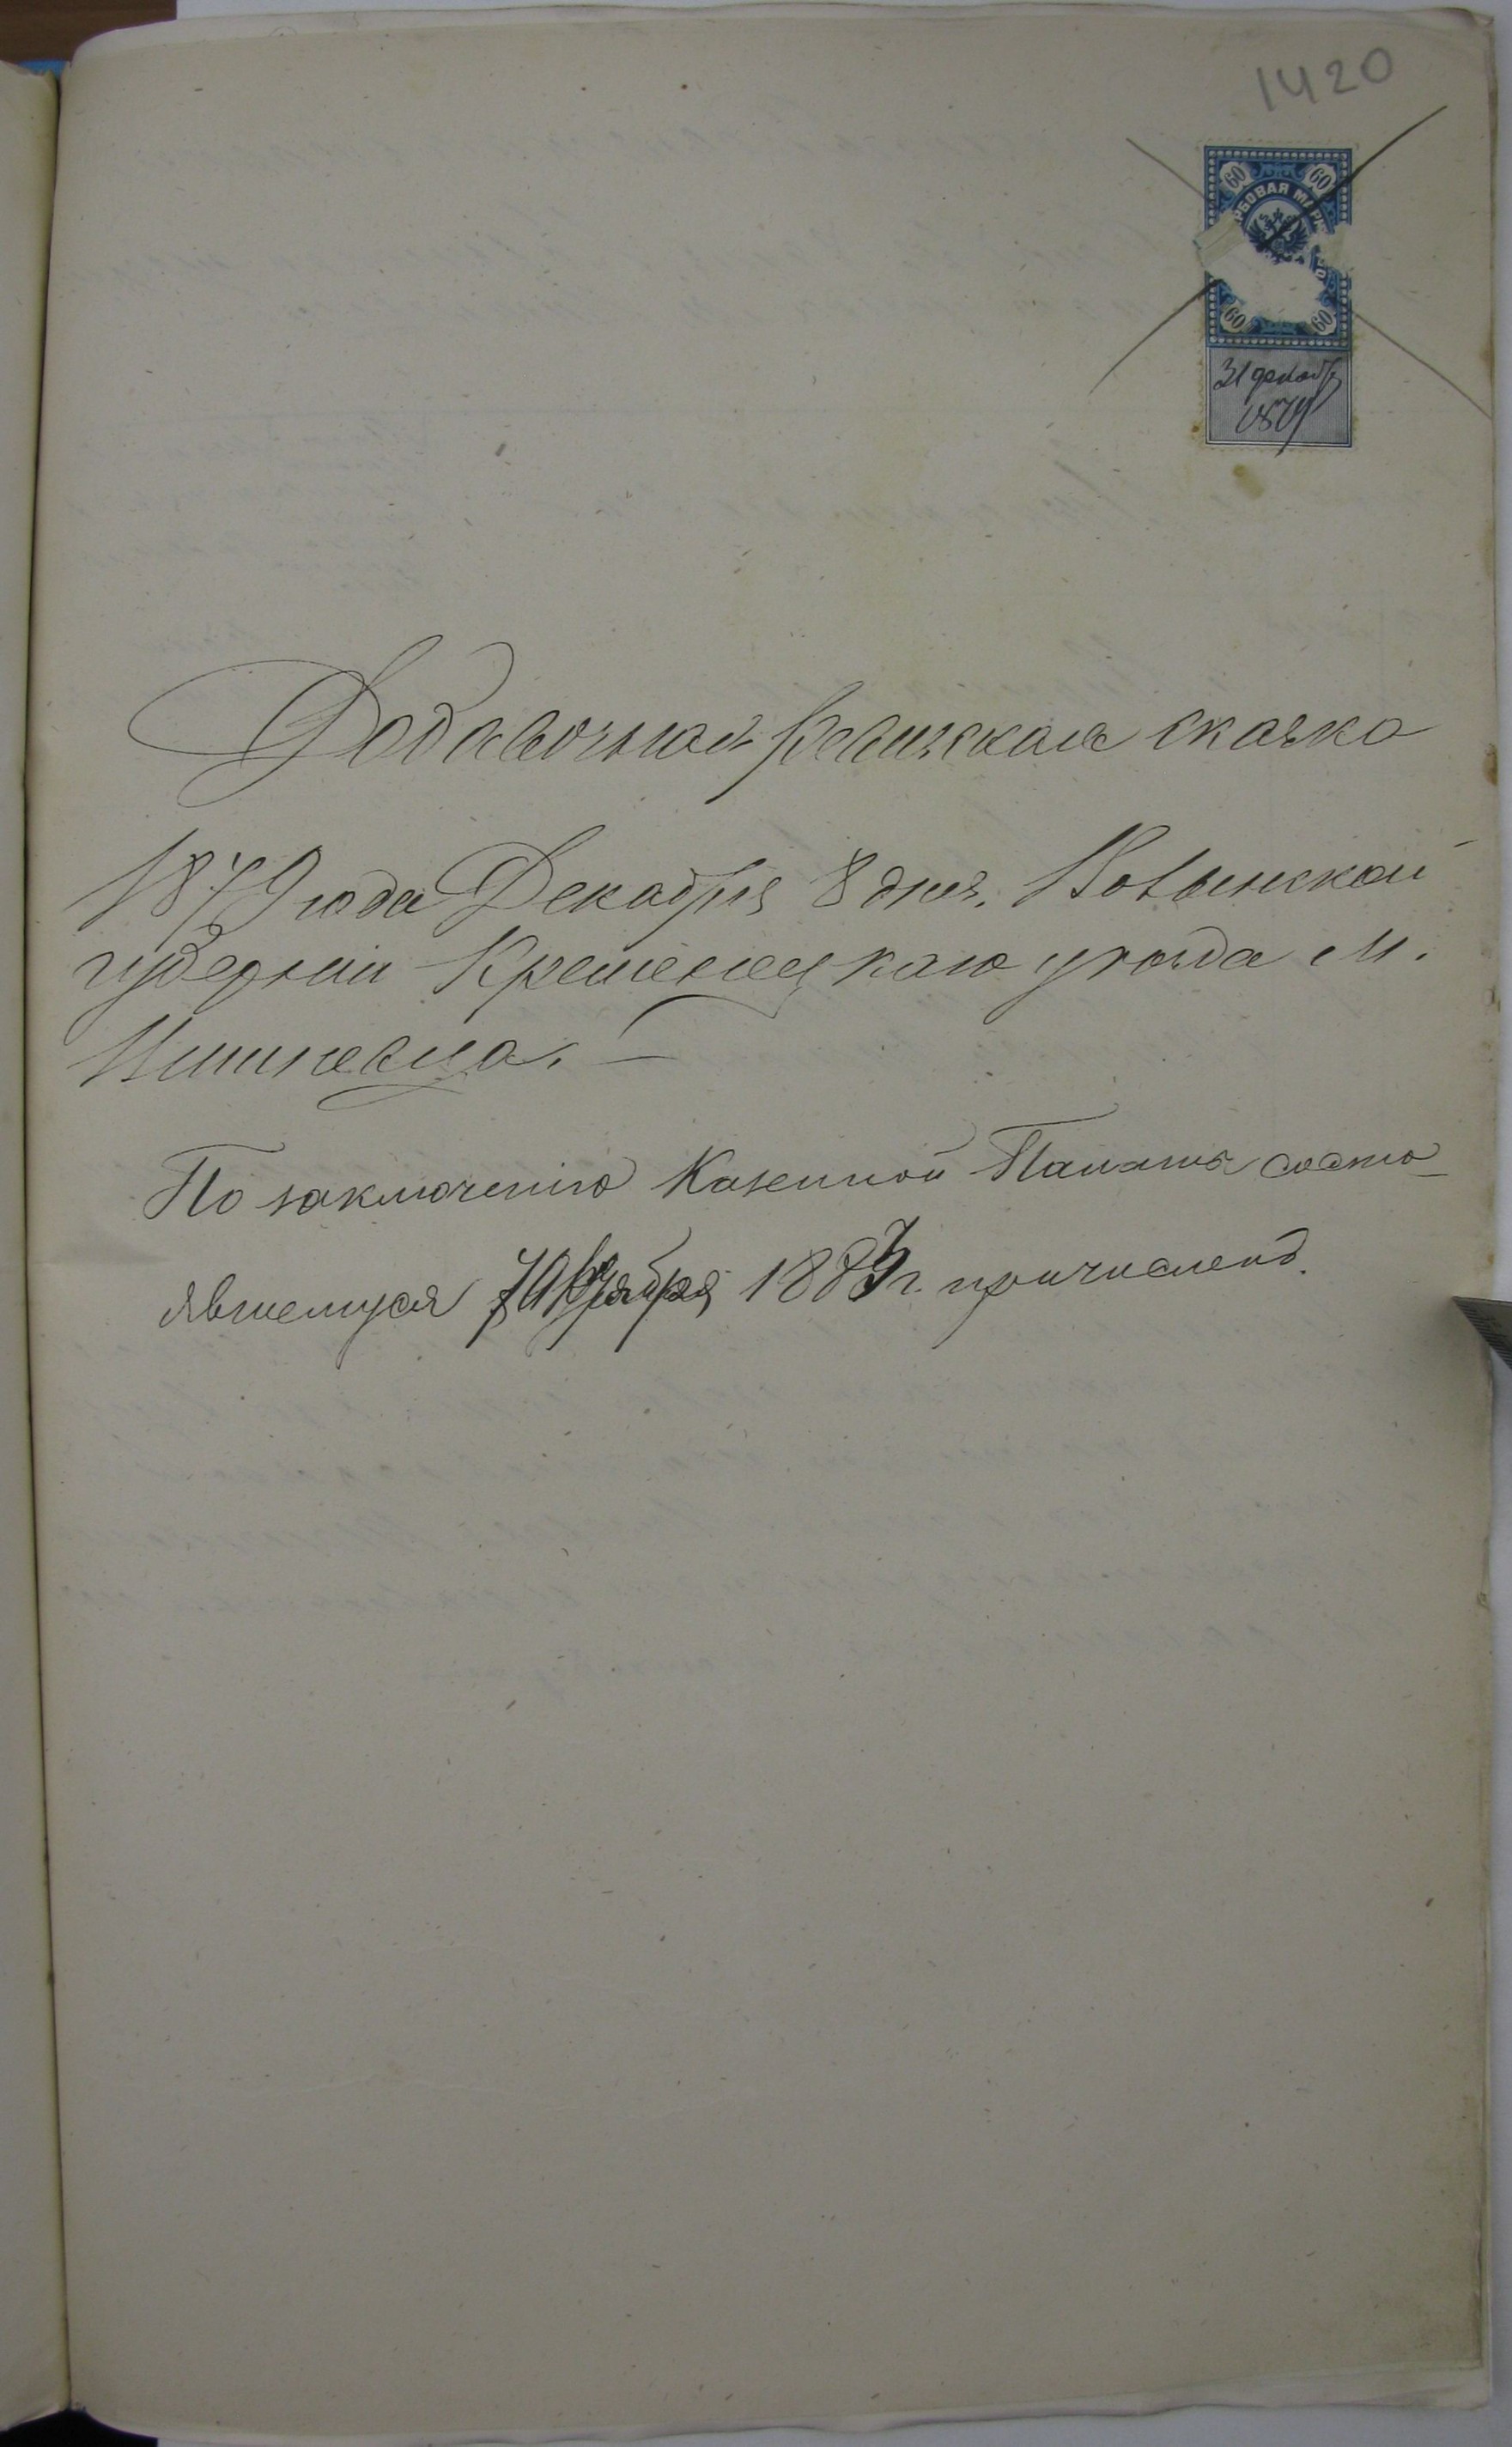 1420
60 60
РБОВАЯ МАР
60 60
31 декабр
1879
Добавочная Ревизская сказка
1879 года Декабря 8 дня. Волынской
губернии Кременецкаго уезда М.
Вишневца. —
По заключенію Казенной Палаты состо-
явшемуся 1883 г. причисленъ.